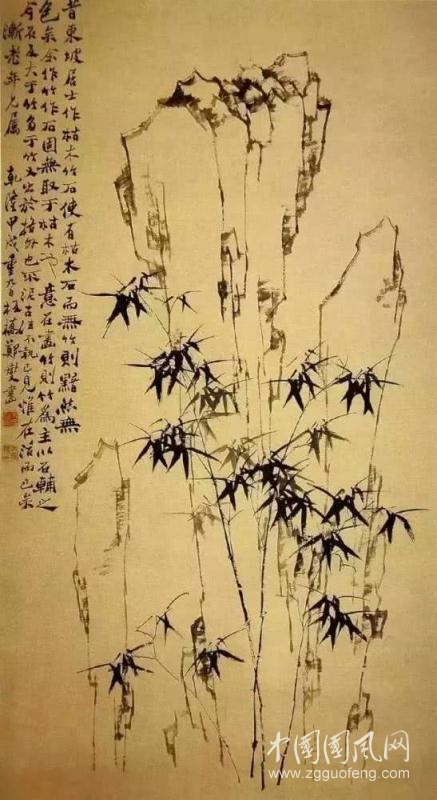 昔東坡居士作枯木竹石使有枯木石而無竹則黯然無
色矣余作竹作石固無取于枯木也意在畫竹則竹為主以石輔之
今石反大于竹多于竹又出於格外也不泥古法不執己見惟在活而已矣
漸老年兄属 乾隆甲戌重九日板橋鄭燮畫
中国国风网
www.zgguofeng.com